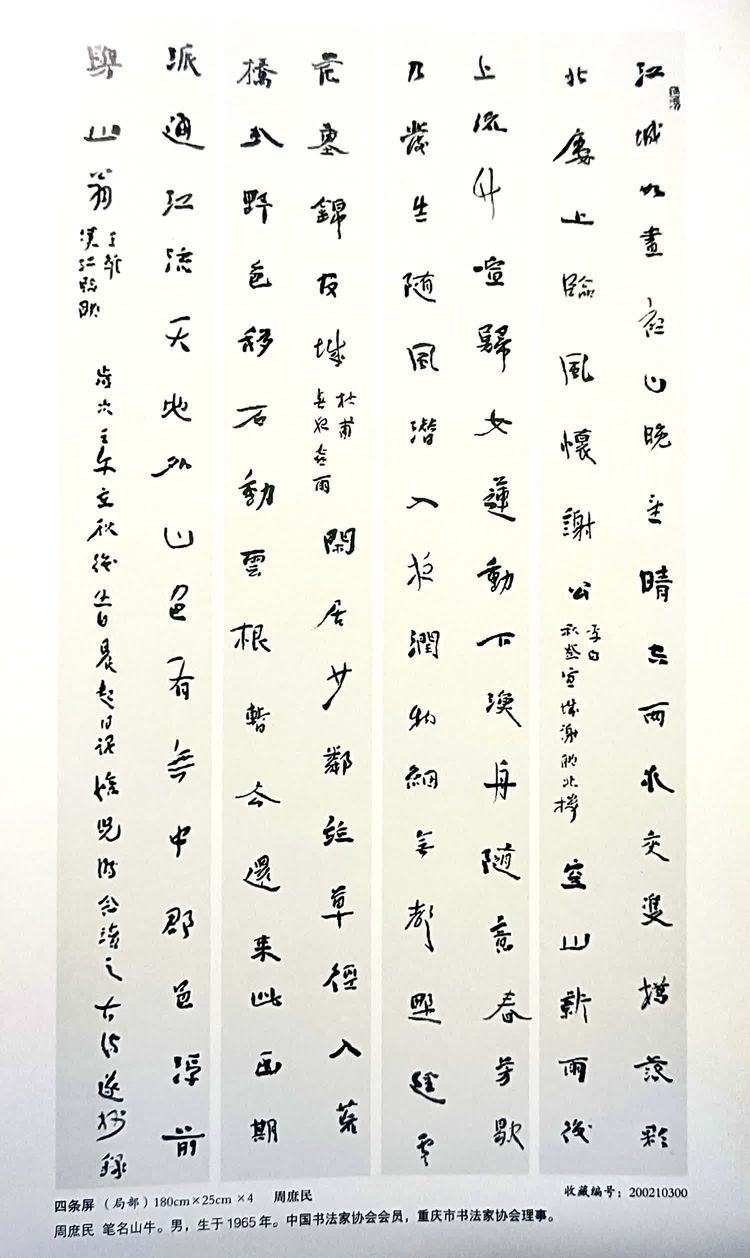 江城如畫裏山晚望晴空兩水夾雙橋落彩
北樓上臨風懷謝公
李白
秋登宣城謝朓北樓
空山新雨後
上流竹喧歸女蓮動下漁舟隨意春芳歇
乃發生隨風潛入夜潤物細無聲野徑雲
花重錦官城
杜甫
春夜喜雨
閑居少鄰並草徑入荒
橋分野色移石動雲根暫去還來此幽期
派通江流天地外山色有無中郡邑浮前
與山翁
王維
漢江臨眺
歲次壬午立秋後 晨起日課 兒時 誦之古詩遂抄錄
四条屏（局部）180cm×25cm ×4 周庶民
收藏编号：200210300
周庶民 笔名山牛。男，生于1965年。中国书法家协会会员，重庆市书法家协会理事。